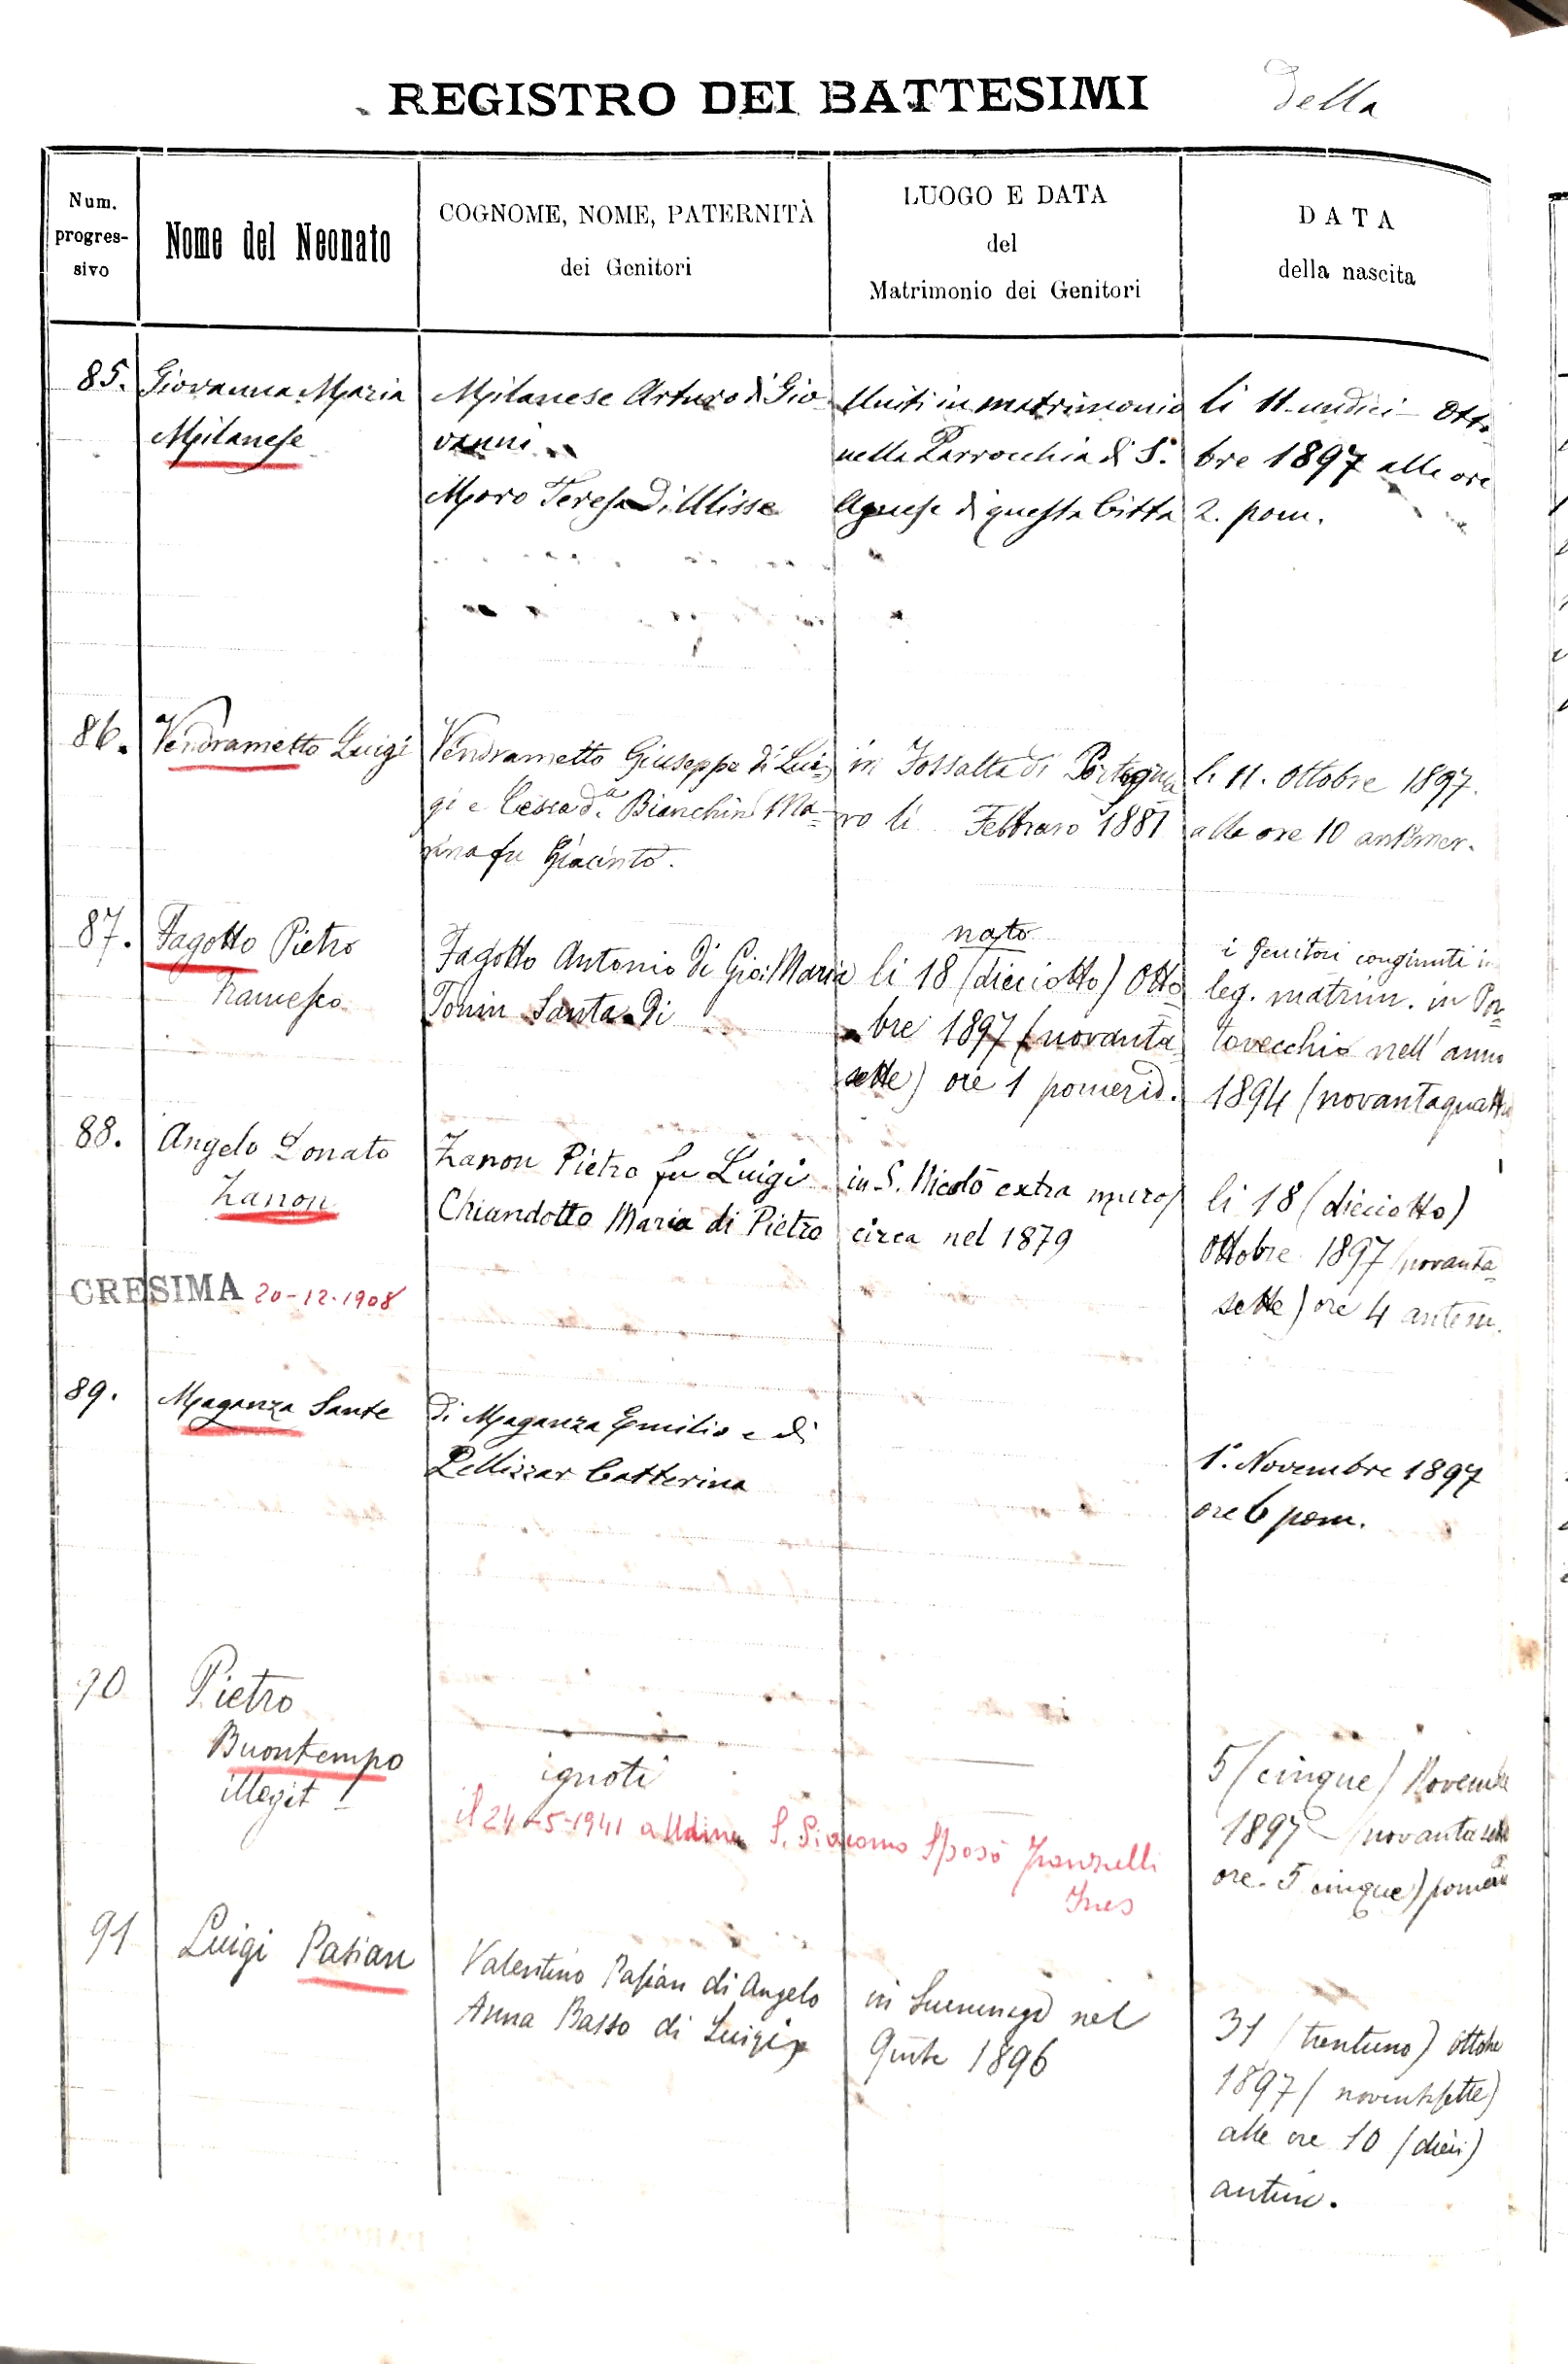 REGISTRO DEI BATTESIMI
della
Num.
progres-
sivo
Nome del Neonato
COGNOME, NOME, PATERNITÀ
dei Genitori
LUOGO E DATA
del
Matrimonio dei Genitori
DATA
della nascita
85.
Giovanna Maria
Milanese
Milanese Arturo di Gio
vanni
Moro Teresa di Ulisse
Uniti in matrimonio
nella Parrocchia di S.
Agnese di questa Città
li 11 undici Otto
bre 1897 alle ore
2. pom.
86.
Vendrametto Luigi
Vendrametto Giuseppe di Lui=
gi e Bianchin Ma=
rina fu Giacinto.
in Fossalta di Portogrua
ro li Febbraro 1881
li 11. Ottobre 1897.
alle ore 10 antimer.
87.
Fagotto Pietro
Francesco
Fagotto Antonio di Gio: Maria
Tonin Santa di
nato
li 18 (dieciotto) Otto
bre 1897 (novanta=
sette) ore 1 pomerid.
i genitori congiunti in
leg. matrim. in Por=
tovecchio nell' anno
1894 (novantaquattro
88.
Angelo Donato
Zanon
Zanon Pietro fu Luigi
Chiandotto Maria di Pietro
in S. Nicolò extra muros
circa nel 1879
li 18 (dieciotto)
Ottobre 1897 (novanta=
sette) ore 4 antem.
CRESIMA 20-12-1908
89.
Maganza Sante
di Maganza Emilio e di
Pellizzar Catterina
1°. Novembre 1897
ore 6 pom.
90
Pietro
Buontempo
illegit
ignoti
5 (cinque) Novembre
1897 (novantasette
ore. 5 cinque) pomerid
il 24-5-1941 a Udine S. Giacomo Sposò
Ines
91
Luigi Pasian
Valentino Pasian di Angelo
Anna Basso di Luigi
in nel
1896
31 (trentuno) ottobre
1897 (novantasette)
alle ore 10 (dieci)
antim.